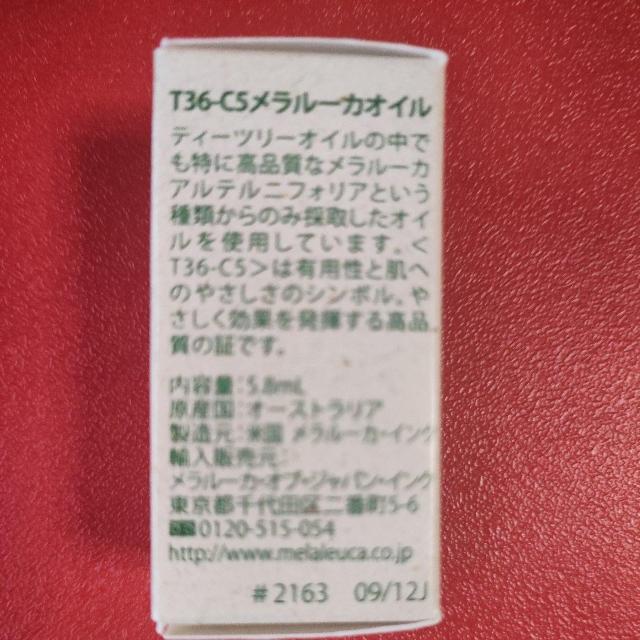 T36-C5メラルーカオイル
ティーツリーオイルの中で
も特に高品質なメラルーカ
アルテルニフォリアという
種類からのみ採取したオイ
ルを使用しています。<
T36-C5>は有用性と肌へ
のやさしさのシンボル。や
さしく効果を発揮する高品
質の証です。
内容量：5.8mL
原産国：オーストラリア
製造元：米国 メラルーカ・インク
輸入販売元：
メラルーカ・オブ・ジャパン・インク
東京都千代田区二番町5-6
0120-515-054
http://www.melaleuca.co.jp
#2163 09/12J